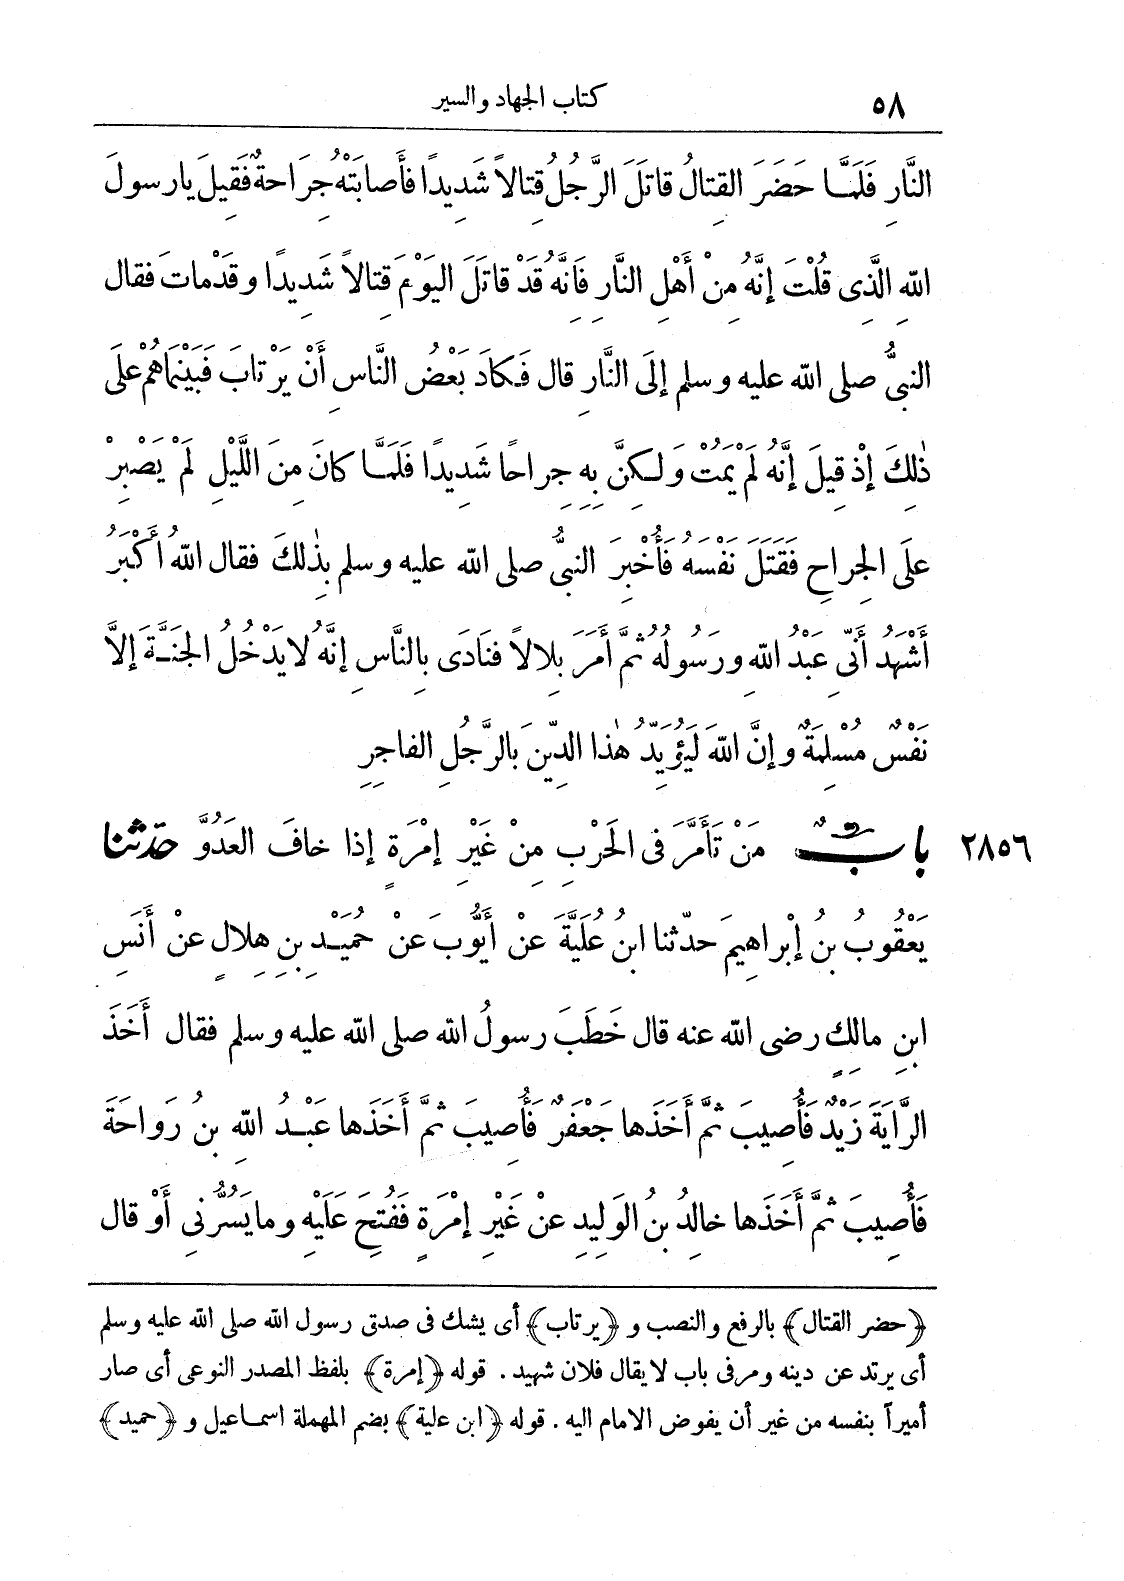 ٥٨ كتاب الجهاد والسير
النَّارِ فَلَمَّا حَضَرَ القِتالُ قاتَلَ الرَّجُلُ قِتالاً شَدِيدًا فأَصابَتْهُ جِراحةٌ فَقِيلَ يارسولَ
اللهِ الَّذِى قُلْتَ إنَّهُ مِنْ أَهْلِ النَّارِ فَانَّهُ قَدْ قاتَلَ اليَوْمَ قِتالاً شَدِيدًا وقَدْ ماتَ فقال
النبىُّ صلى الله عليه وسلم إلَى النَّارِ قال فَكادَ بَعْضُ النَّاسِ أَنْ يَرْتابَ فَبَيْنَماهُمْ علَى
ذٰلِكَ إذْ قِيلَ إنَّهُ لَمْ يَمُتْ وَلكِنَّ بِهِ جِراحًا شَدِيدًا فَلَمَّا كانَ مِنَ اللَّيْلِ لَمْ يَصْبِرْ
علَى الجِراحِ فَقَتَلَ نَفْسَهُ فَأُخْبِرَ النبىُّ صلى الله عليه وسلم بِذٰلكَ فقال اللهُ أَكْبَرُ
أَشْهَدُ أَنِّى عَبْدُ اللهِ ورَسُولُهُ ثُمَّ أَمَرَ بِلالاً فنَادَى بِالنَّاسِ إنَّهُ لا يَدْخُلُ الجَنَّةَ إلاَّ
نَفْسٌ مُسْلِمَةٌ وإنَّ اللهَ لَيُؤَيِّدُ هٰذا الدِّينَ بالرَّجُلِ الفاجِرِ
٢٨٥٦ بابٌ مَنْ تَأَمَّرَ فى الحَرْبِ مِنْ غَيْرِ إمْرَةٍ إذا خافَ العَدُوَّ حدّثنا
يَعْقُوبُ بنُ إبْراهِيمَ حدّثنا ابنُ عُلَيَّةَ عنْ أَيُّوبَ عنْ حُمَيْدِ بنِ هِلالٍ عنْ أَنَسِ
ابنِ مالِكٍ رضى الله عنه قال خَطَبَ رسولُ الله صلى الله عليه وسلم فقال أَخَذَ
الرَّايَةَ زَيْدٌ فَأُصِيبَ ثمَّ أَخَذَها جَعْفَرٌ فأُصِيبَ ثمَّ أَخَذَها عَبْدُ اللهِ بنُ رَواحَةَ
فَأُصِيبَ ثمَّ أَخَذَها خالِدُ بنُ الوَلِيدِ عنْ غَيْرِ إمْرَةٍ فَفُتِحَ عَلَيْهِ وما يَسُرُّنى أوْ قال
﴿حضر القتال﴾ بالرفع والنصب و ﴿يرتاب﴾ أى يشك فى صدق رسول الله صلى الله عليه وسلم
أى يرتد عن دينه ومر فى باب لا يقال فلان شهيد . قوله ﴿إمرة﴾ بلفظ المصدر النوعى أى صار
أميرآ بنفسه من غير أن يفوض الامام اليه . قوله ﴿ابن علية﴾ بضم المهملة اسماعيل و ﴿حميد﴾